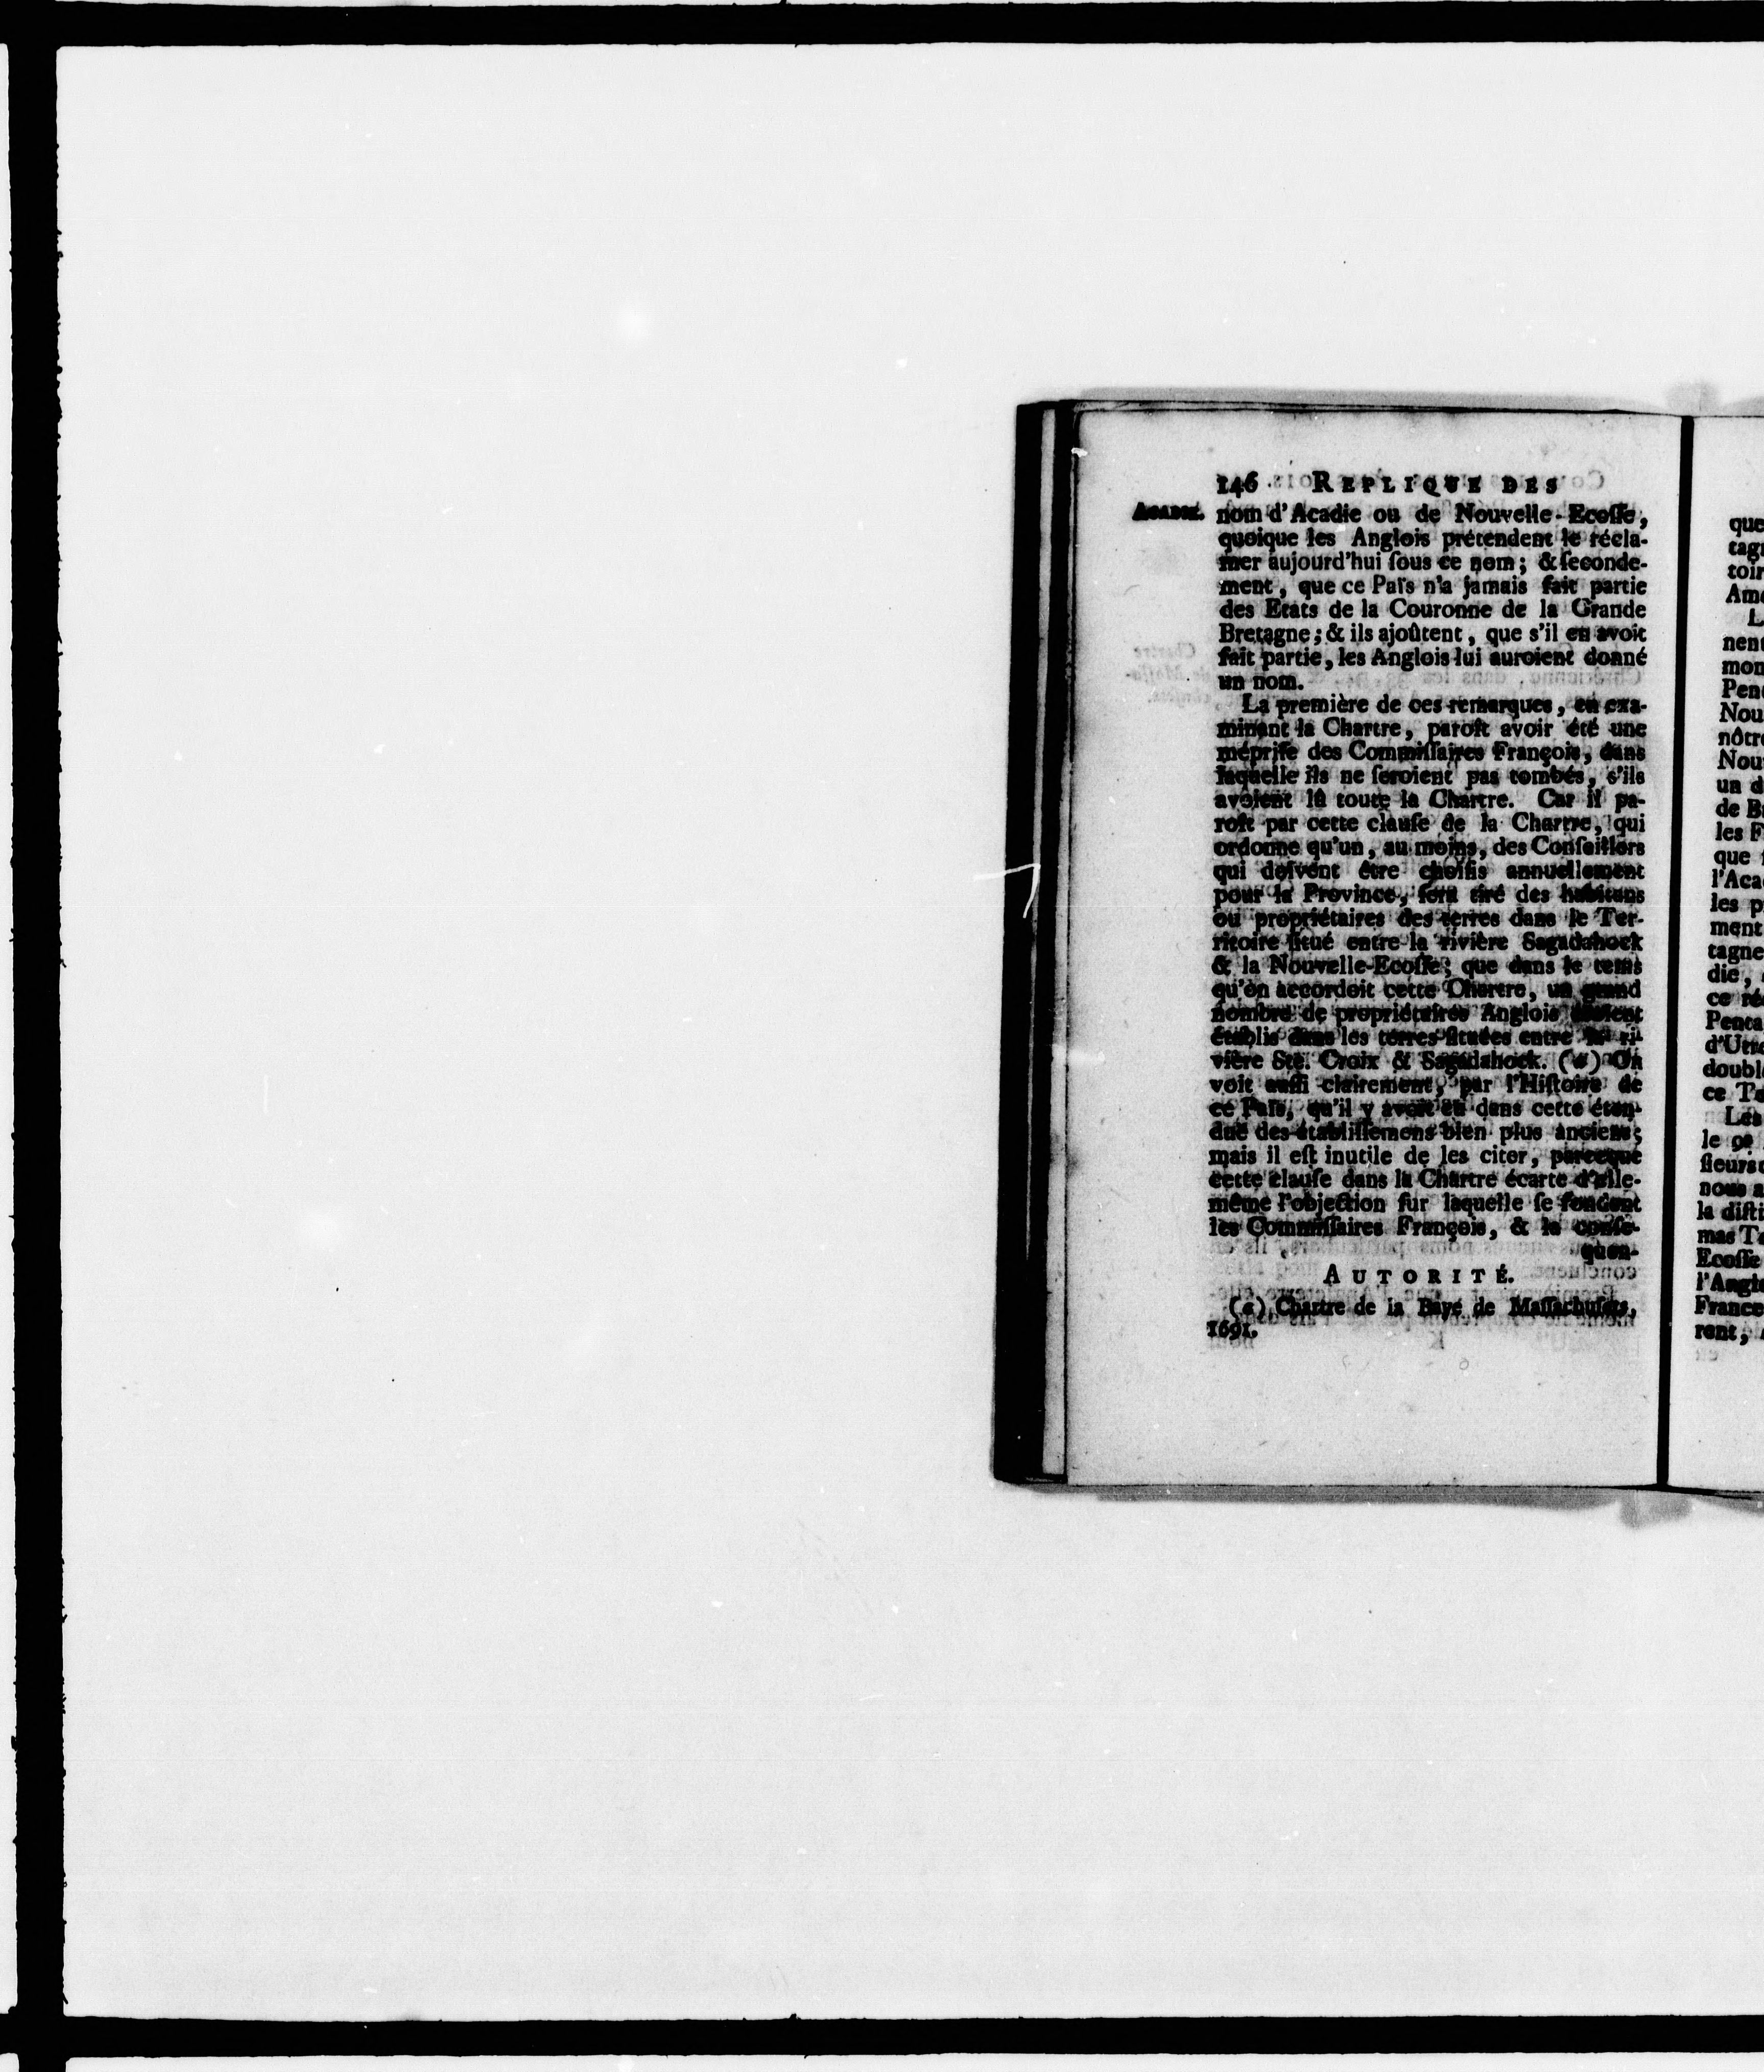 146 REPLIQUE DES
ACADIE. nom d'Acadie ou de Nouvelle-Ecoſſe,
quoique les Anglois prétendent le récla-
mer aujourd'hui ſous ce nom; & ſeconde-
ment, que ce Païs n'a jamais fait partie
des Etats de la Couronne de la Grande
Bretagne; & ils ajoûtent, que s'il en avoit
fait partie, les Anglois lui auroient donné
un nom.
La première de ces remarques, en exa-
minant la Chartre, paroît avoir été une
mépriſe des Commiſſaires François, dans
laquelle ils ne ſeroient pas tombés, s'ils
avoient lû toute la Chartre. Car il pa-
roît par cette clauſe de la Chartre, qui
ordonne qu'un, au moins, des Conſeillers
qui doivent être choiſis annuellement
pour la Province, ſera tiré des habitans
ou propriétaires des terres dans le Ter-
ritoire ſitué entre la rivière Sagadahock
& la Nouvelle-Ecoſſe; que dans le tems
qu'on accordoit cette Chartre, un grand
nombre de propriétaires Anglois étoient
établis dans les terres ſituées entre la ri-
vière Ste. Croix & Sagadahock. (a) On
voit auſſi clairement, par l'Hiſtoire de
ce Païs, qu'il y avoit eu dans cette éten-
due des établiſſemens bien plus anciens;
mais il eſt inutile de les citer, parceque
cette clauſe dans la Chartre écarte d'elle-
même l'objection ſur laquelle ſe fondent
les Commiſſaires François, & la conſé-
quen-
AUTORITÉ.
(a) Chartre de la Baye de Maſſachuſets,
1691.
que
tag
toir
Amé
L
nent
mon
Pen
Nou
nôtre
Nou
un d
de B
les F
que
l'Aca
les p
ment
tagne
die,
ce ré
Penta
d'Utr
double
ce Te
Les
le 9e
ſieurs
nous a
la diſti
mas Te
Ecoſſe
l'Angle
France
rent,